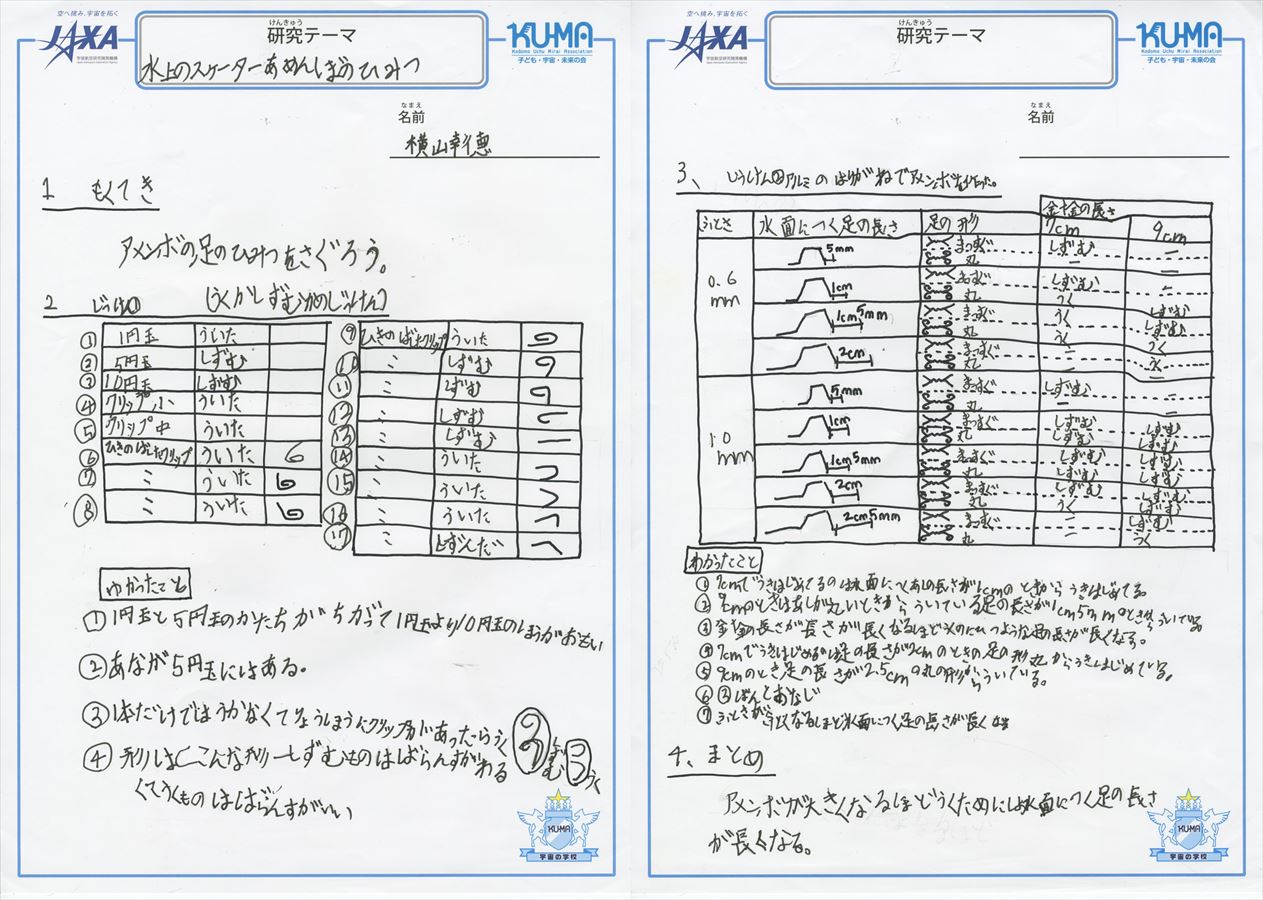 空へ挑み、宇宙を拓く
JAXA
宇宙航空研究開発機構
けんきゅう
研究テーマ
水上のスケーターあめんぼのひみつ
KU-MA
Kodomo Uchu Mirai Association
子ども・宇宙・未来の会
なまえ
名前
横山幸恵
1 もくてき
アメンボの足のひみつをさぐろう。
2 じっけん①
(うくかしずむかのじっけん)
① 1円玉 ういた
② 5円玉 しずむ
③ 10円玉 しずむ
④ クリップ小 ういた
⑤ クリップ中 ういた
⑥ ひきのばしたクリップ ういた
⑦ 〃 ういた
⑧ 〃 ういた
⑨ ひきのばしたクリップ ういた
10 〃 しずむ
11 〃 しずむ
12 しずむ
13 〃 しずむ
14 〃 ういた
15 ういた
16 〃 ういた
17 しずんだ
わかったこと
① 1円玉と5円玉のかたちがちがって1円玉より10円玉のほうがおもい
② あなが5円玉にはある。
③ 1本だけではうかなくてりょうほうにクリップ
④ 形はこんな形しずむものはばらんすがわる
くてうくものはばらんすがいい
しずむ
うく
KU-MA
宇宙の学校
空へ挑み、宇宙を拓く
JAXA
宇宙航空研究開発機構
けんきゅう
研究テーマ
KU-MA
Kodomo Uchu Mirai Association
子ども・宇宙・未来の会
なまえ
名前
3、じっけん② アルミのはりがねでアメンボを作った。
針金の長さ
ふとさ 水面につく足の長さ 足の形 7cm 9cm
0.6mm
5mm まっすぐ しずむ ー
丸 ー ー
1cm まっすぐ しずむ ー
丸 うく しずむ
1cm5mm まっすぐ うく しずむ
丸 うく うく
2cm まっすぐ ー うく
丸 ー ー
1.0mm
5mm まっすぐ しずむ ー
丸 ー ー
1cm まっすぐ しずむ しずむ
丸 しずむ しずむ
1cm5mm まっすぐ しずむ しずむ
丸 しずむ しずむ
2cm まっすぐ しずむ しずむ
丸 うく しずむ
2cm5mm まっすぐ ー しずむ
丸 ー うく
わかったこと
① 7cmでうきはじめてるのは水面につくあしの長さが1cmのときからうきはじめてる
② 9cmのときはあしが丸いときからういている足の長さが1cm5mmのときからういてる
③ 針金の長さが長くなるほどうくのにひつような足の長さが長くなる。
④ 7cmでうきはじめるのは足の長さが2cmのときの足の形丸からうきはじめている。
⑤ 9cmのとき足の長さが2.5cmの丸の形からういている。
⑥ ③ばんとおなじ
⑦ ふとさが なるほど水面につく足の長さが長くなる
4、まとめ
アメンボが大きくなるほどうくためには水面につく足の長さ
が長くなる。
KU-MA
宇宙の学校